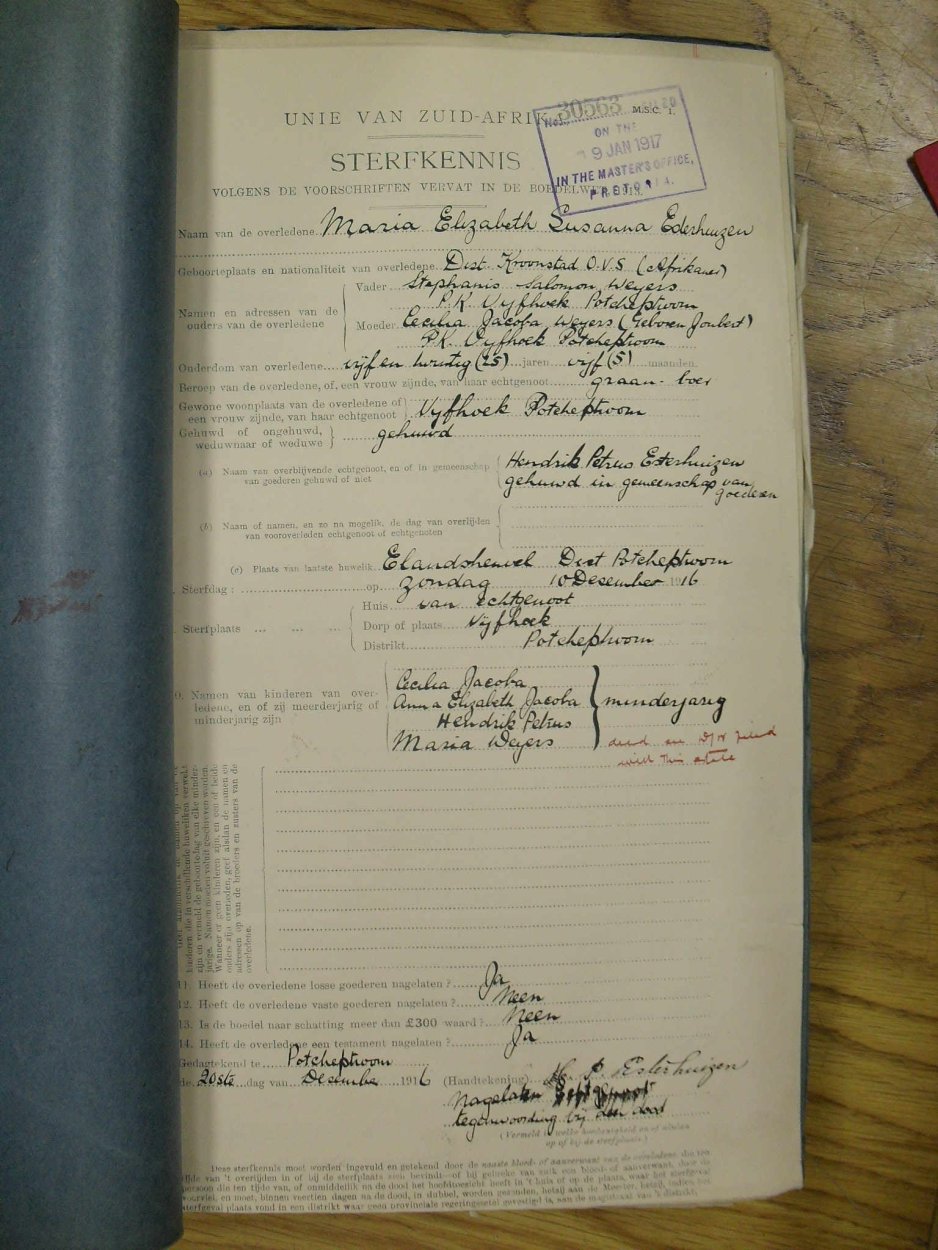 UNIE VAN ZUID-AFRIK
No. 30563
M.S.C. 1.
ON THE
9 JAN 1917
IN THE MASTER'S OFFICE,
PRETORIA.
STERFKENNIS
VOLGENS DE VOORSCHRIFTEN VERVAT IN DE BOEDELWET, 1913.
Naam van de overledene Maria Elizabeth Susanna Esterhuizen
Geboorteplaats en nationaliteit van overledene Dist. Kroonstad O.V.S (Afrikaner)
Namen en adressen van de ouders van de overledene
Vader Stephanis Salomon Weyers
P.K. Vyfhoek Potchefstroom
Moeder Cecilia Jacoba Weyers (Geboren Joubert)
P.K. Vyfhoek Potchefstroom
Ouderdom van overledene vijf en twintig (25) jaren vijf (5) maanden
Beroep van de overledene, of, een vrouw zijnde, van haar echtgenoot graan-boer
Gewone woonplaats van de overledene of
een vrouw zijnde, van haar echtgenoot Vyfhoek Potchefstroom
Gehuwd of ongehuwd,
weduwnaar of weduwe gehuwd
(a) Naam van overblijvende echtgenoot, en of in gemeenschap
van goederen gehuwd of niet
Hendrik Petrus Esterhuizen
gehuwd in gemeenschap van
goederen
(b) Naam of namen, en zo na mogelik, de dag van overlijden
van vooroverleden echtgenoot of echtgenoten
(c) Plaats van laatste huwelik Elandsheuvel Dist Potchefstroom
Sterfdag : op Zondag 10 Desember 1916
Sterfplaats
Huis van echtgenoot
Dorp of plaats Vyfhoek
Distrikt Potchefstroom
0. Namen van kinderen van over-
ledene, en of zij meerderjarig of
minderjarig zijn
Cecilia Jacoba
Anna Elizabeth Jacoba
Hendrik Petrus
Maria Weyers
minderjarig
dead see D/N filed
with this estate
kinderen die in verschillende huweliken verwekt
zijn en vermeld de geboortedag van elke minder-
jarige. Namen moeten voluit geschreven worden.
Wanneer er geen kinderen zijn, en een of beide
ouders zijn overleden, geef alsdan de namen en
adressen op van de broeders en zusters van de
overledene.
11. Heeft de overledene losse goederen nagelaten ? Ja
12. Heeft de overledene vaste goederen nagelaten ? Neen
13. Is de boedel naar schatting meer dan £300 waard ? Neen
14. Heeft de overledene een testament nagelaten ? Ja
Gedagtekend te Potchefstroom
de 20ste dag van Desember 1916 (Handtekening) H P Esterhuizen
Nagelaten
tegenwoordig bij den dood
(Vermeld in welke hoedanigheid en of alsdan
op of bij de sterfplaats.)
Deze sterfkennis moet worden ingevuld en getekend door de naaste bloed- of aanverwant van de overledene, die ten
tijde van 't overlijden in of bij de sterfplaats zich bevindt—of bij gebreke van zulk een bloed- of aanverwant, door de
persoon die ten tijde van, of onmiddellik na de dood het hoofdtoezicht heeft in 't huis of op de plaats, waar het sterfgeval
voorviel, en moet, binnen veertien dagen na de dood, in dubbel, worden gezonden, hetzij aan de Meester, hetzij, indien het
sterfgeval plaats vond in een distrikt waar geen provinciale regeringszetel gevestigd is, aan de magistraat van 't distrikt.